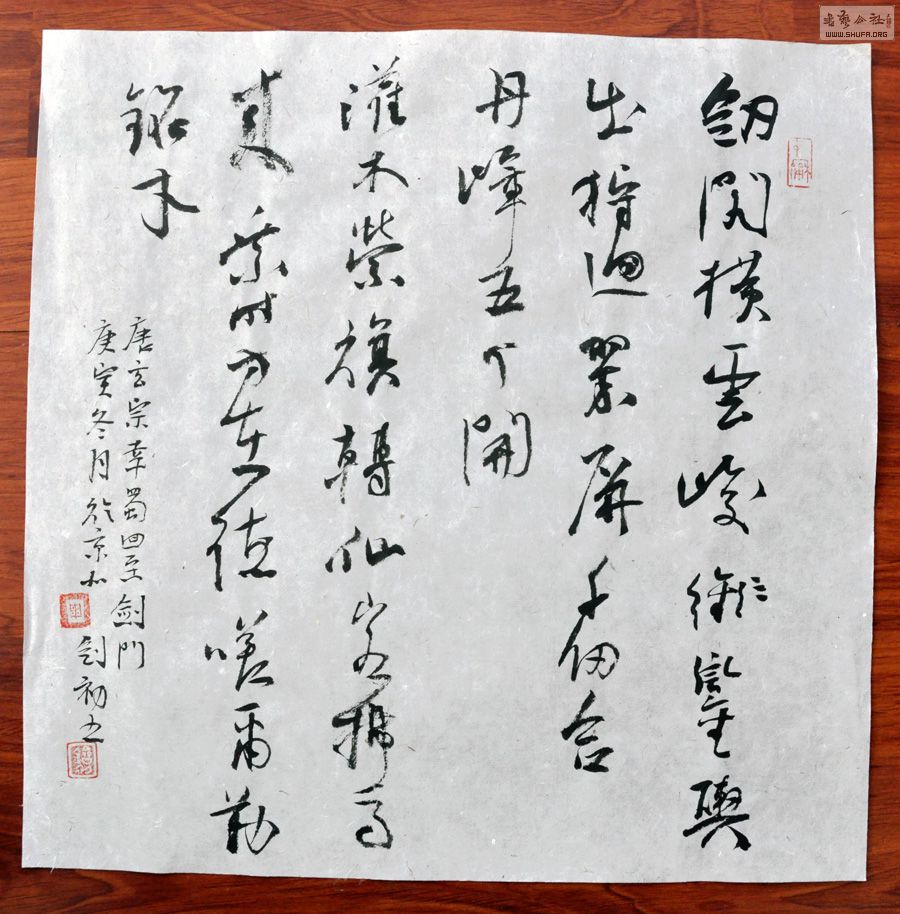 劍閣橫雲峻鑾輿
出狩迴翠屏千仞合
丹嶂五丁開
灌木縈旗轉仙雲拂馬
來乘時方在德嗟爾勒
銘才
唐玄宗幸蜀回至劍門
庚寅冬月於京北劍初書
WWW.SHUFA.ORG